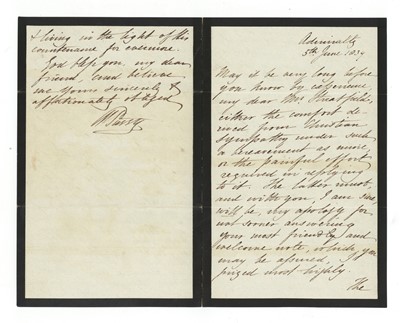 Admiralty
5th June 1839
May it be very long before
you know by experience,
my dear Mrs
either the comfort de-
rived from Christian
sympathy under such
a bereavement as mine,
or the painful effort
required in replying
to it. The latter must,
and with you, I am sure,
will be, my apology for
not sooner answering
your most friendly and
welcome note, which, you
may be assured, I
prized most highly.
The
& living in the light of His
countenance for evermore.
God bless you, my dear
friend, and believe
me yours sincerely &
affectionately obliged